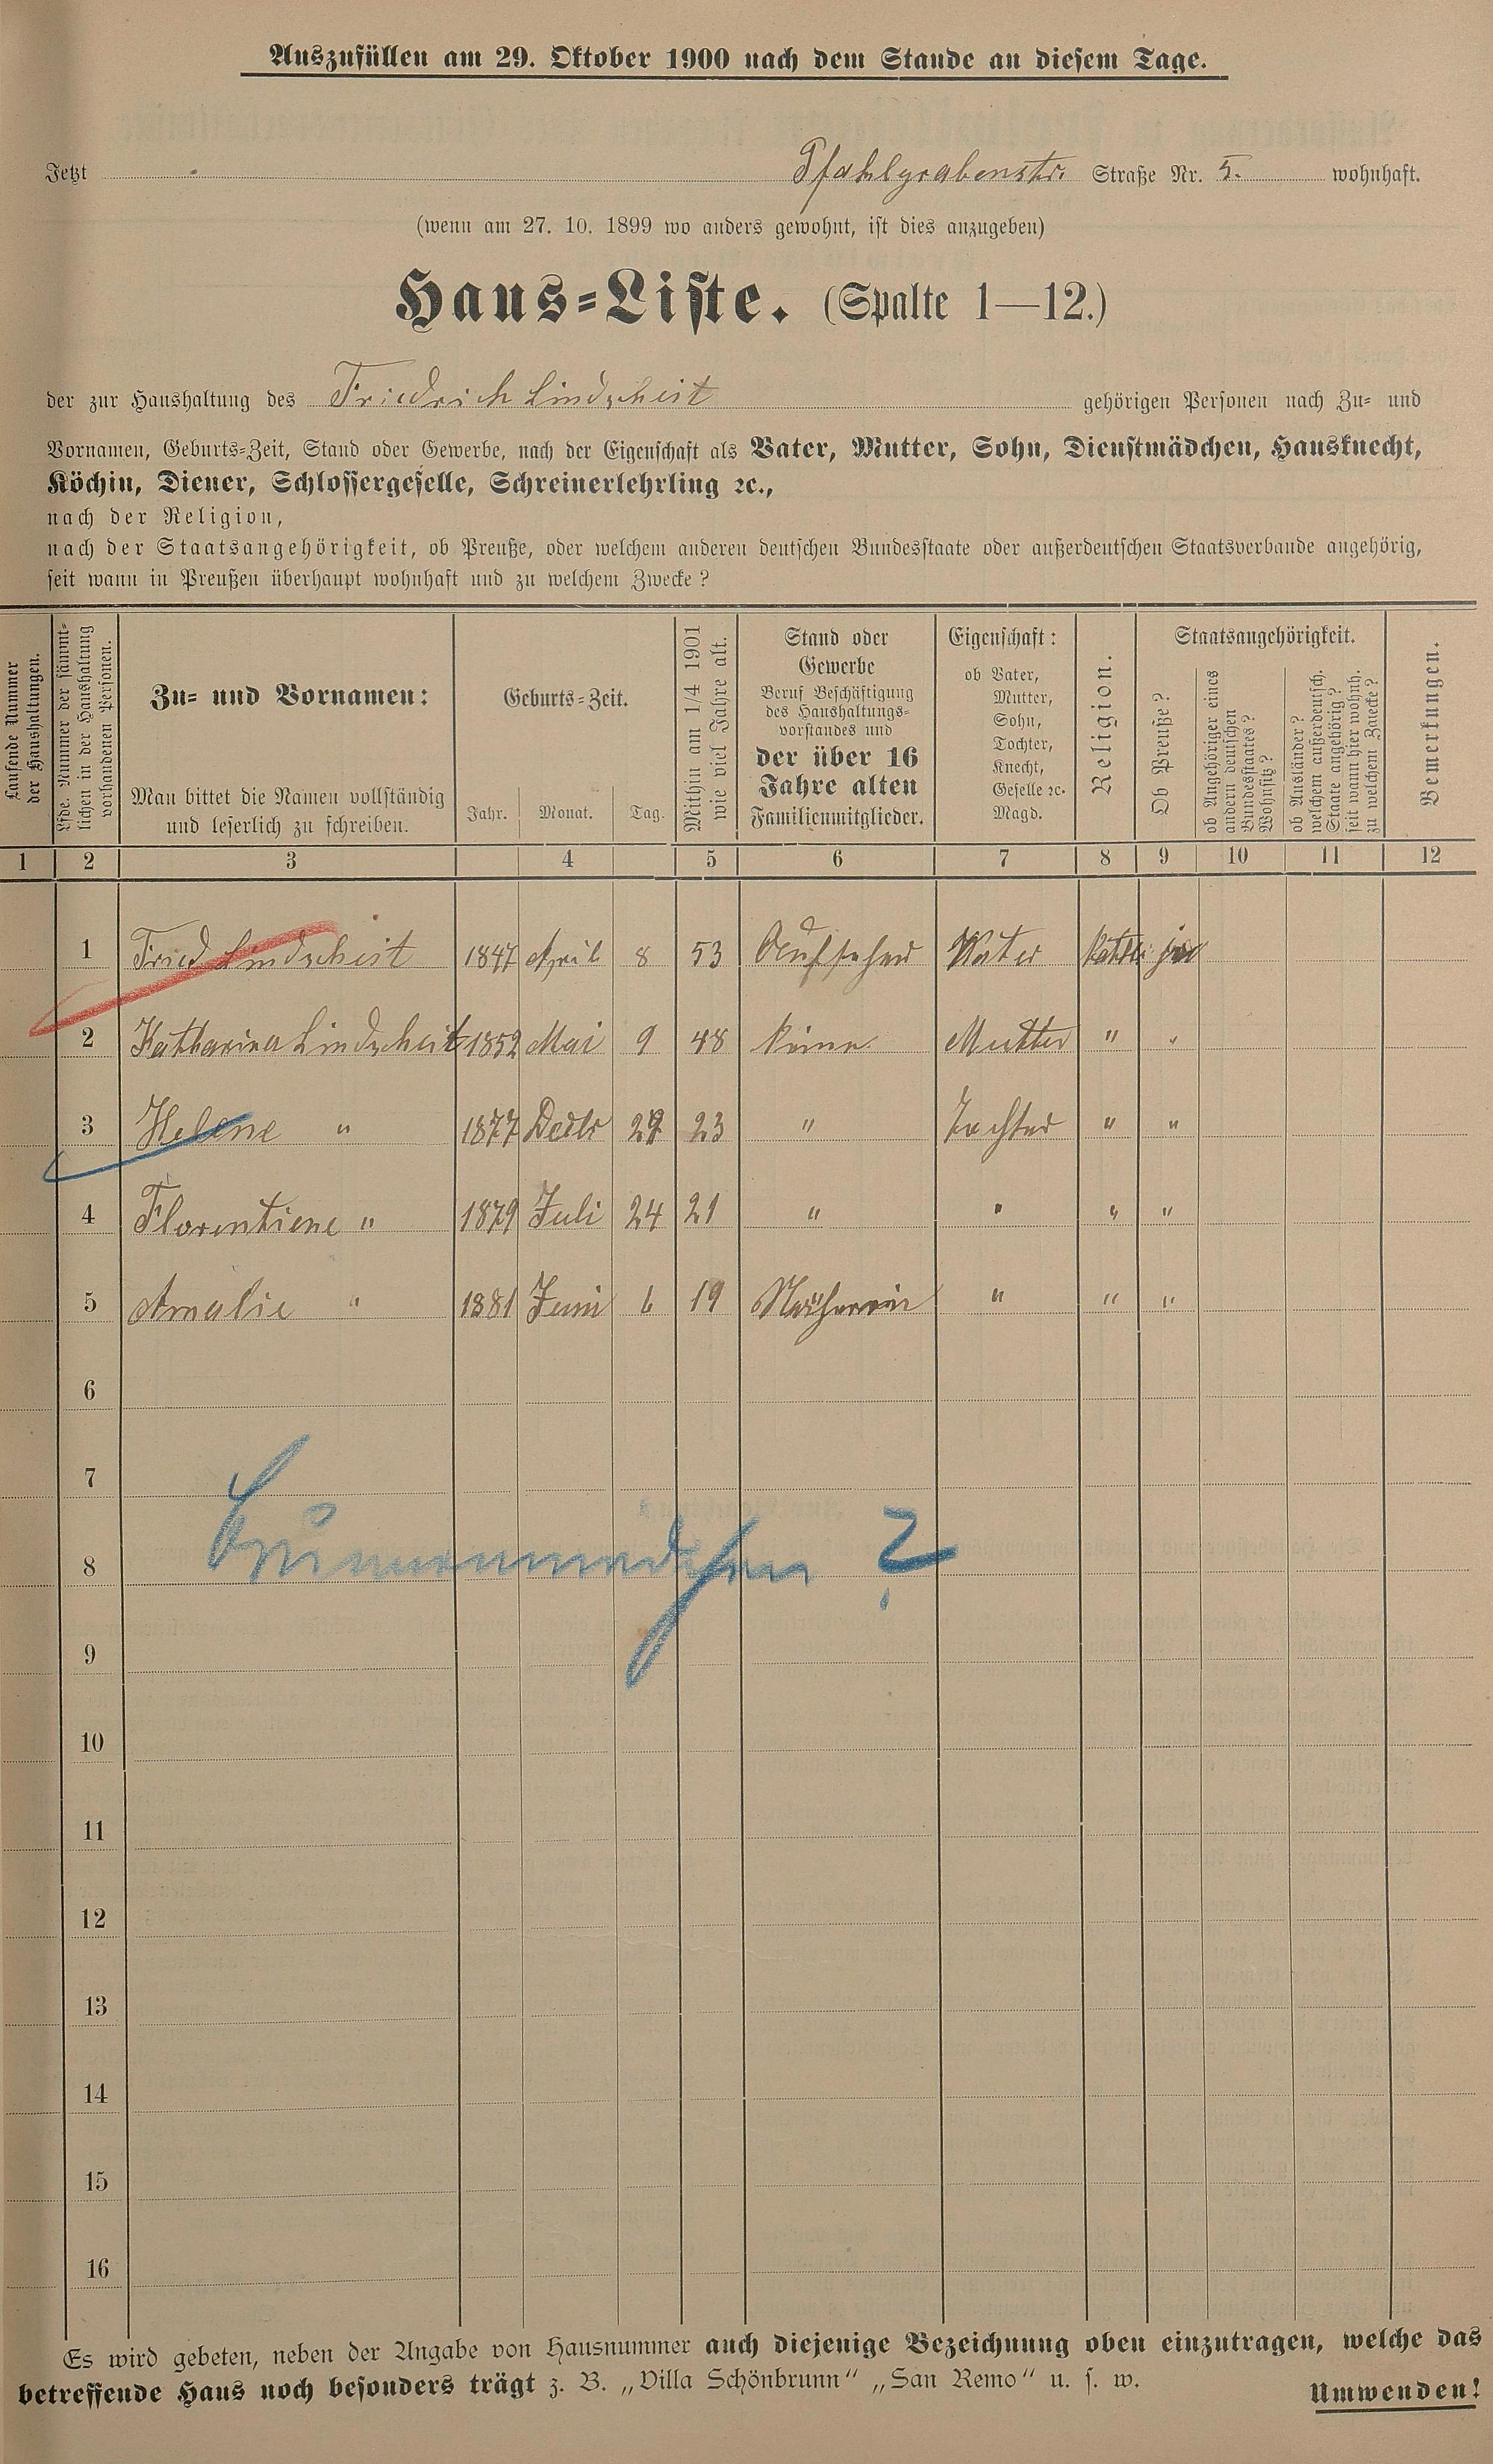 Auszufüllen am 29. Oktober 1900 nach dem Stande an diesem Tage.
Jetzt Pfahlgrabenstr. Straße Nr. 5. wohnhaft.
(wenn am 27. 10. 1899 wo anders gewohnt, ist dies anzugeben)
Haus-Liste. (Spalte 1—12.)
der zur Haushaltung des Friedrich Lindscheit gehörigen Personen nach Zu- und
Vornamen, Geburts-Zeit, Stand oder Gewerbe, nach der Eigenschaft als Vater, Mutter, Sohn, Dienstmädchen, Hausknecht,
Köchin, Diener, Schlossergeselle, Schreinerlehrling ꝛc.,
nach der Religion,
nach der Staatsangehörigkeit, ob Preuße, oder welchem anderen deutschen Bundesstaate oder außerdeutschen Staatsverbande angehörig,
seit wann in Preußen überhaupt wohnhaft und zu welchem Zwecke?
Laufende Nummer
der Haushaltungen.
Lfde. Nummer der sämmt-
lichen in der Haushaltung
vorhandenen Personen.
Zu- und Vornamen:
Man bittet die Namen vollständig
und leserlich zu schreiben.
Geburts-Zeit.
Jahr. Monat. Tag.
Mithin am 1/4 1901
wie viel Jahre alt.
Stand oder
Gewerbe
Beruf Beschäftigung
des Haushaltungs-
vorstandes und
der über 16
Jahre alten
Familienmitglieder.
Eigenschaft:
ob Vater,
Mutter,
Sohn,
Tochter,
Knecht,
Geselle ꝛc.
Magd.
Religion.
Staatsangehörigkeit.
Ob Preuße?
ob Angehöriger eines
andern deutschen
Bundesstaates?
Wohnsitz?
ob Ausländer?
welchem außerdeutsch.
Staate angehörig?
seit wann hier wohnh.
zu welchem Zwecke?
Bemerkungen.
1 2 3 4 5 6 7 8 9 10 11 12
1 Fried Lindscheit 1847 April 8 53 Aufseher Vater Kath. ja
2 Katharina Lindscheit 1852 Mai 9 48 keine Mutter " "
3 Helene " 1877 Decbr 29 23 " Tochter " "
4 Florentiene " 1879 Juli 24 21 " " " "
5 Amalie " 1881 Juni 6 19 Näherin " " "
6
7
8 Brunnenmädchen ?
9
10
11
12
13
14
15
16
Es wird gebeten, neben der Angabe von Hausnummer auch diejenige Bezeichnung oben einzutragen, welche das
betreffende Haus noch besonders trägt z. B. „Villa Schönbrunn“ „San Remo“ u. s. w.
Umwenden!